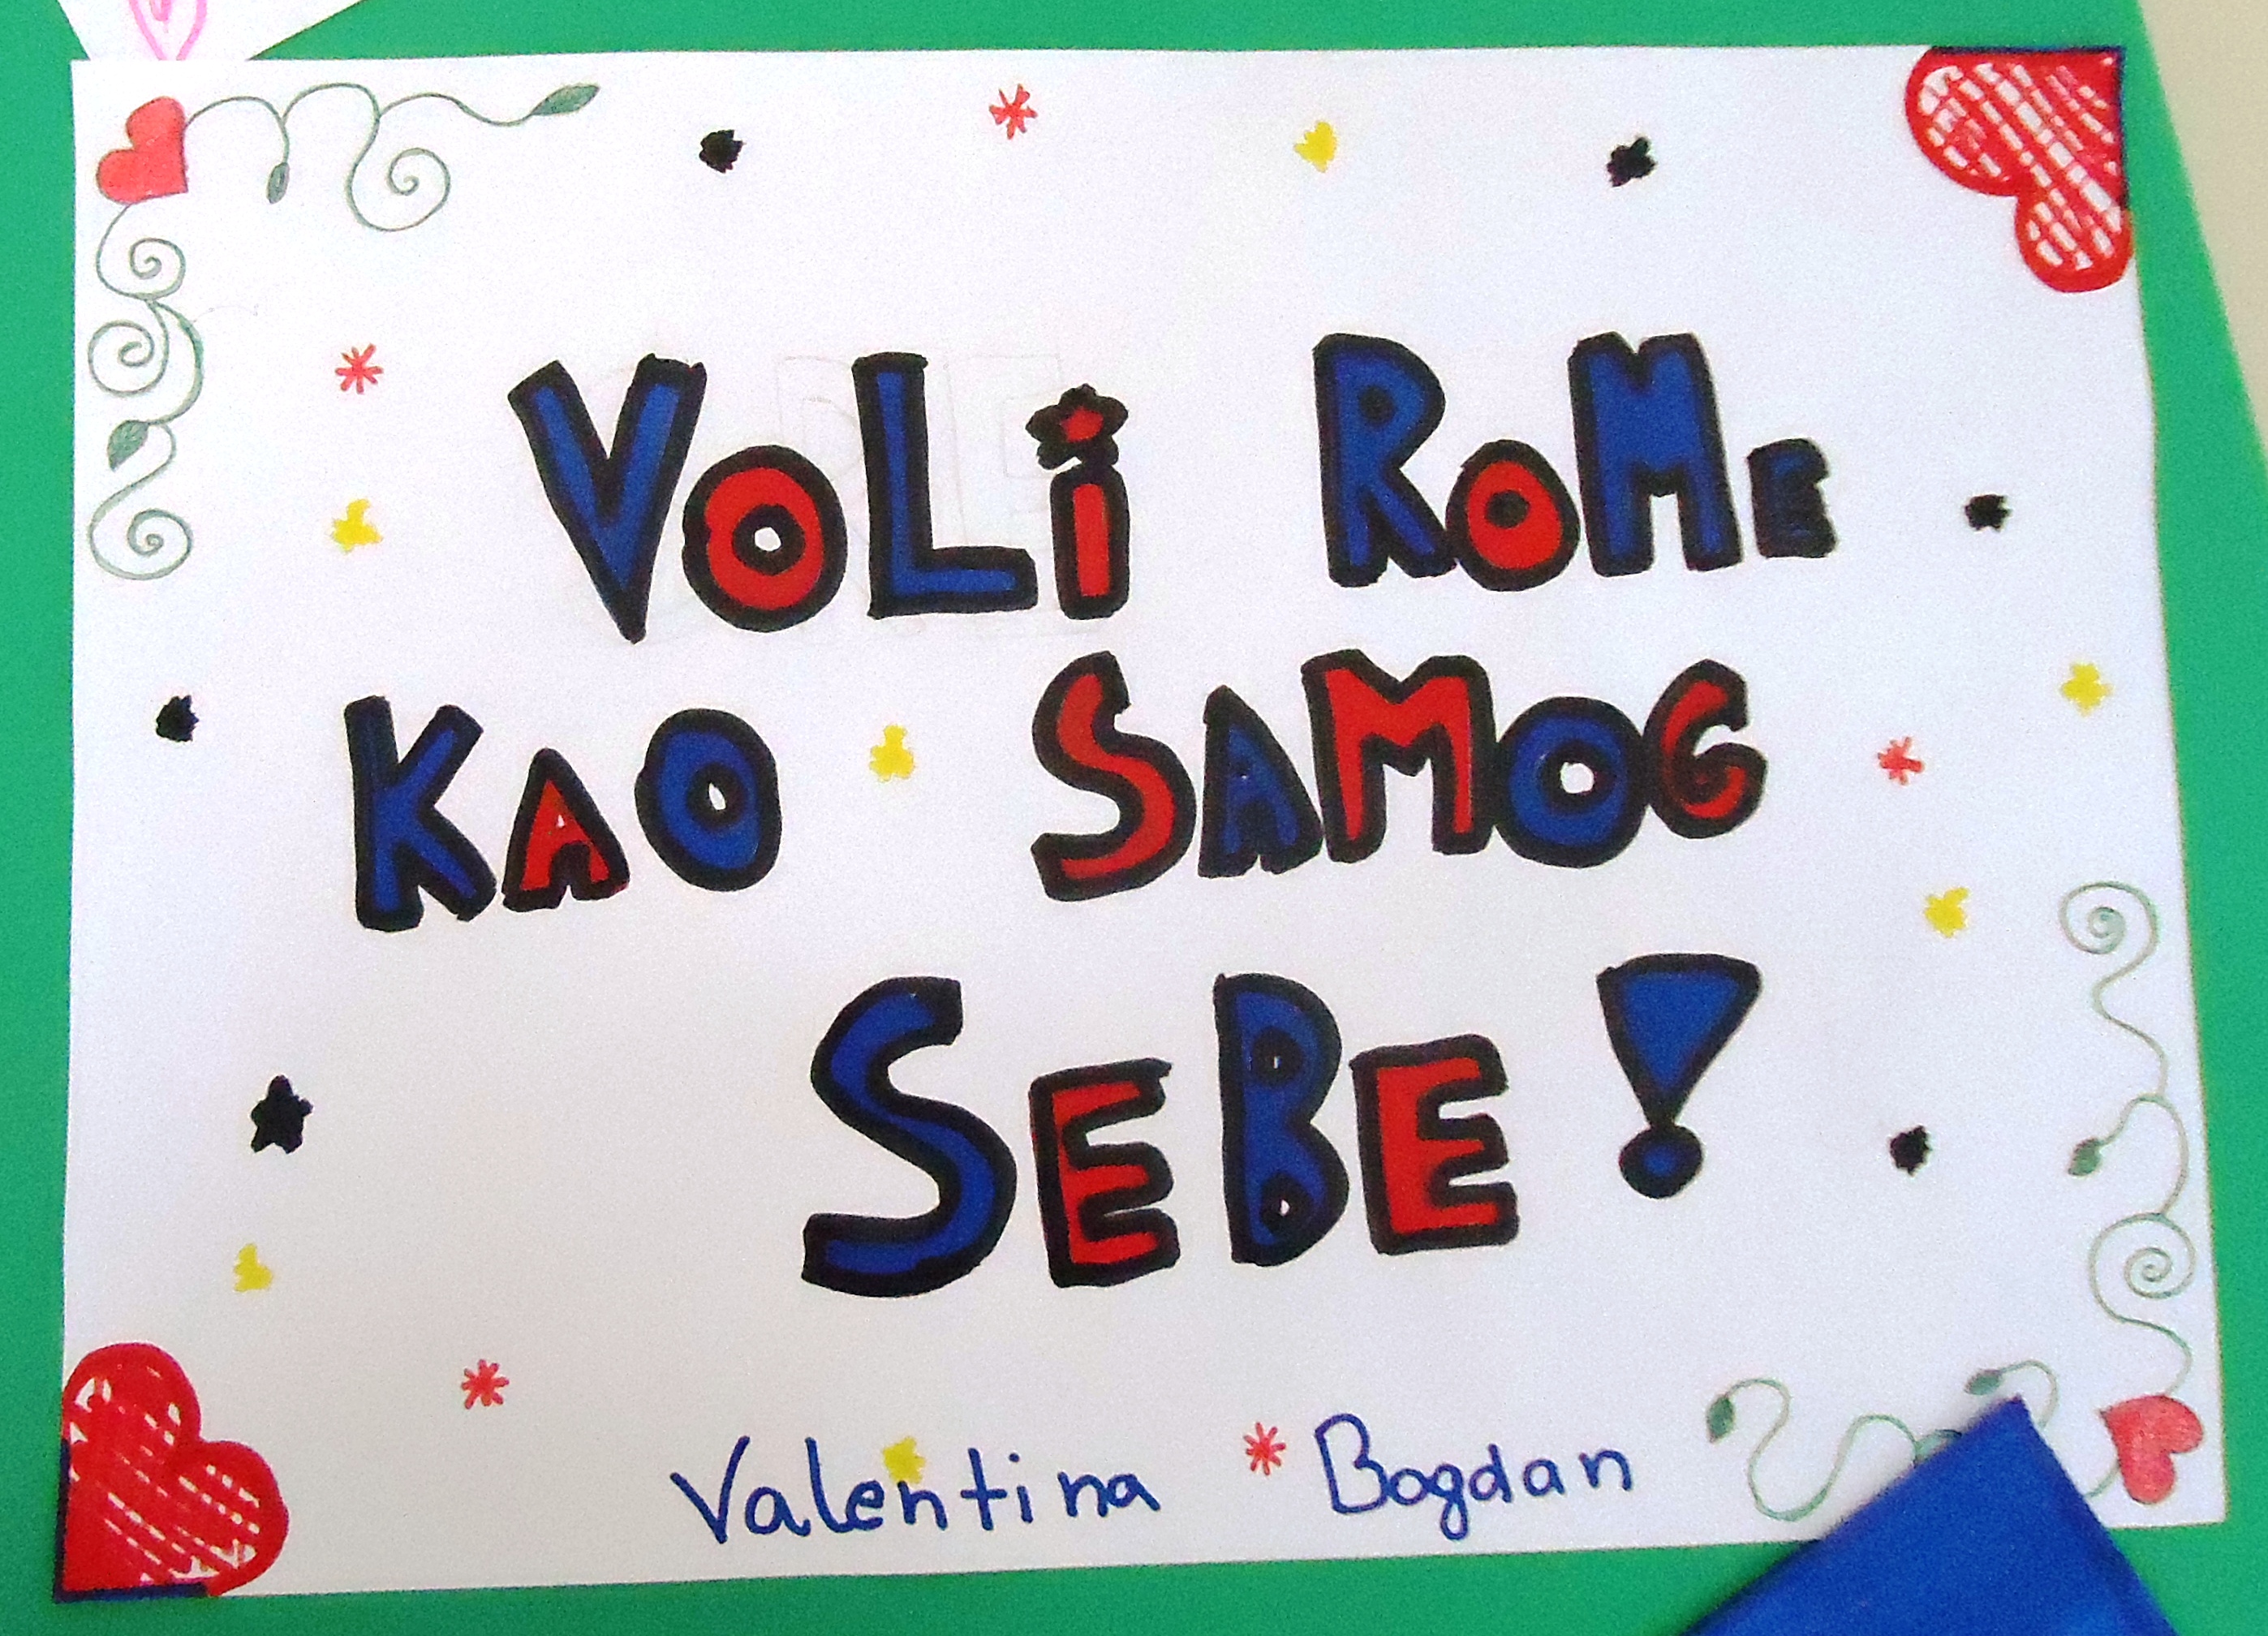 VOLi ROME
KAO SAMOG
SEBE!
Valentina Bogdan